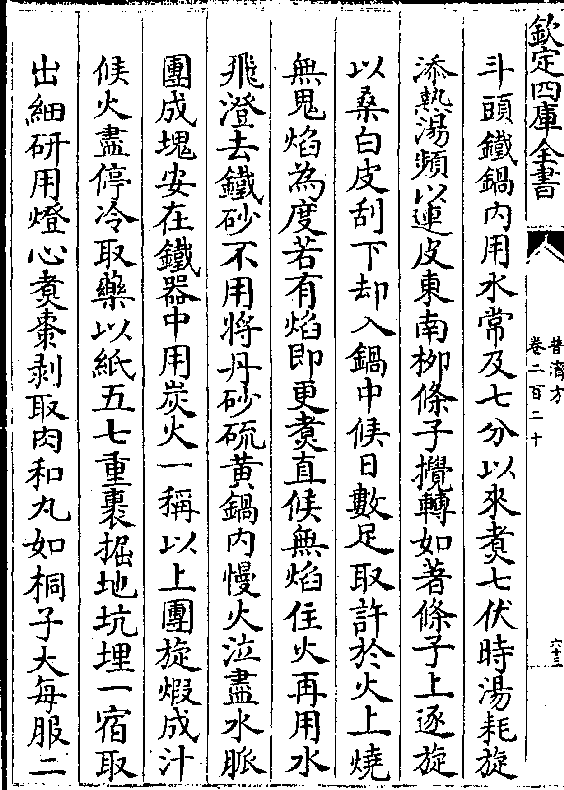 欽定四庫全書
普濟方
卷二百二十
六十三
斗頭鐵鍋内用水常及七分以來煑七伏時湯耗旋
添熱湯頻以連皮東南栁條子攪轉如著條子上逐旋
以桑白皮刮下却入鍋中候日數足取許於火上燒
無鬼焰為度若有焰即更煑直候無焰住火再用水
飛澄去鐵砂不用將丹砂硫黄鍋内慢火泣盡水脈
團成塊安在鐵器中用炭火一稱以上團旋煆成汁
候火盡停冷取藥以紙五七重裹掘地坑埋一宿取
出細研用燈心煑棗剥取肉和丸如桐子大每服二